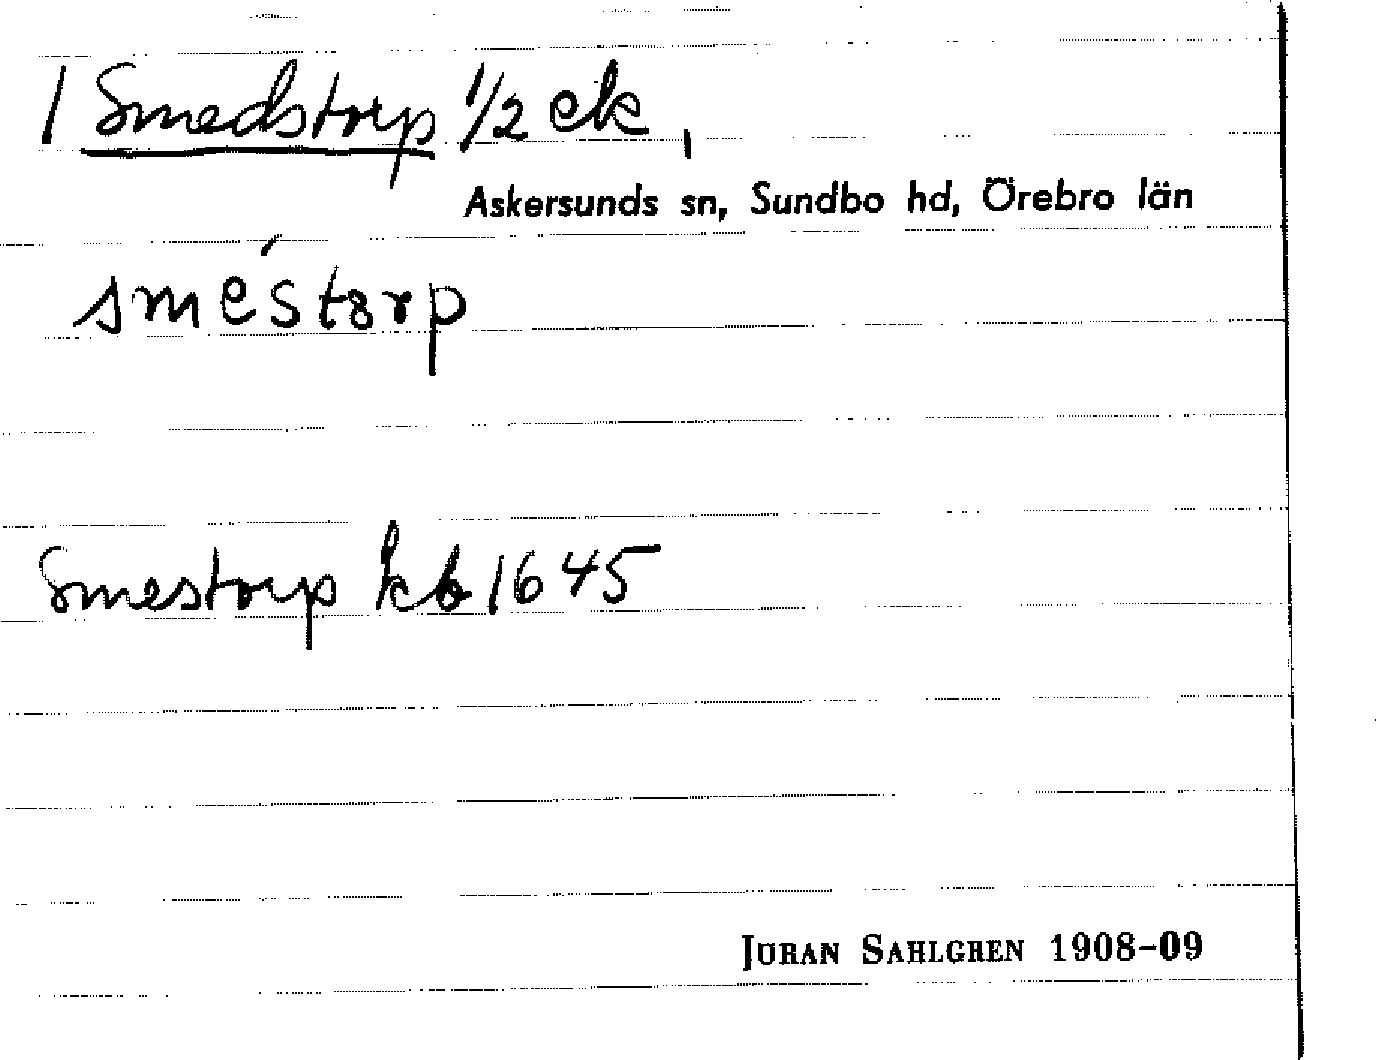 1 Smedstorp 1/2 ek,
Askersunds sn, Sundbo hd, Örebro län
smés tɞrp
Smestorp kb 1645
JÖRAN SAHLGREN 1908-09